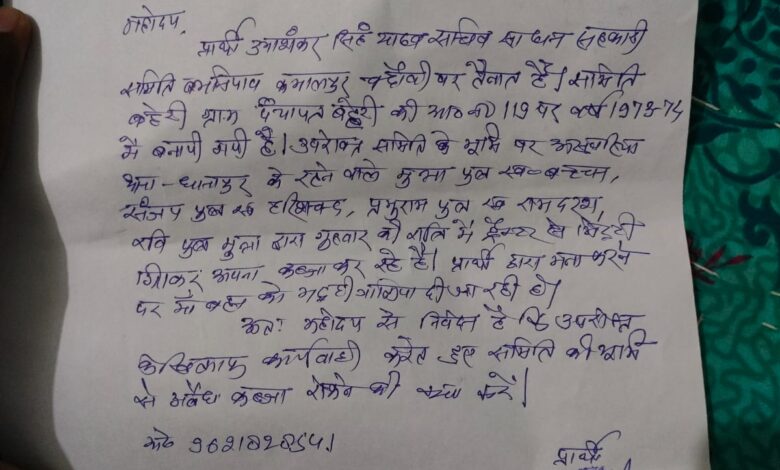 महोदय,
प्रार्थी उमाशंकर सिंह यादव सचिव साधन सहकारी
समिति कमालपुर चंदौली पर तैनात है। समिति
बहेरी ग्राम पंचायत बहेरी की आ०का० 119 पर वर्ष 1973-74
में बनायी गयी है। उपरोक्त समिति के भूमि पर
थाना-धानापुर के रहने वाले मुन्ना पुत्र स्व० बच्चन,
संजय पुत्र स्व हरिशंकर, प्रभुराम पुत्र स्व रामदरश,
रवि पुत्र मुन्ना द्वारा गुरुवार की रात्रि में ट्रैक्टर से मिट्टी
गिराकर अपना कब्जा कर रहे है। प्रार्थी द्वारा मना करने
पर माँ बहन की भद्दी गालिया दी जा रही है।
अतः महोदय से निवेदन है कि उपरोक्त
के खिलाफ कार्यवाही करते हुए समिति की भूमि
से अवैध कब्जा रोकने की कृपा करें।
मो० 9621828541
प्रार्थी